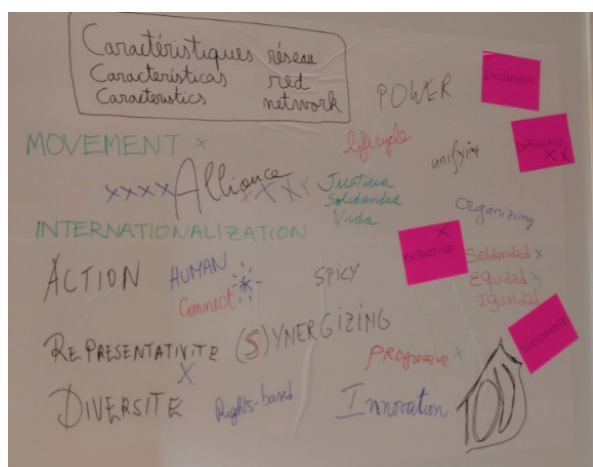 Caractéristiques réseau
Caracteristicas red
Caracteristics network
POWER
INCLUSION
MOVEMENT x
lifecycle
unifying
INFLUENCE
X X
xxxx Alliance x X X Y
Justicia
Solidaridad
Vida
Organizing
INTERNATIONALIZATION
X
EXPERTISE
Solidaridad x
Equidad x
Igualdad
ACTION
HUMAN
Connect
SPICY
(S)YNERGIZING
REPRESENTATIVITE
X
PROgressive +
SOLIDARITE
DIVERSITE
Rights-based
Innovation